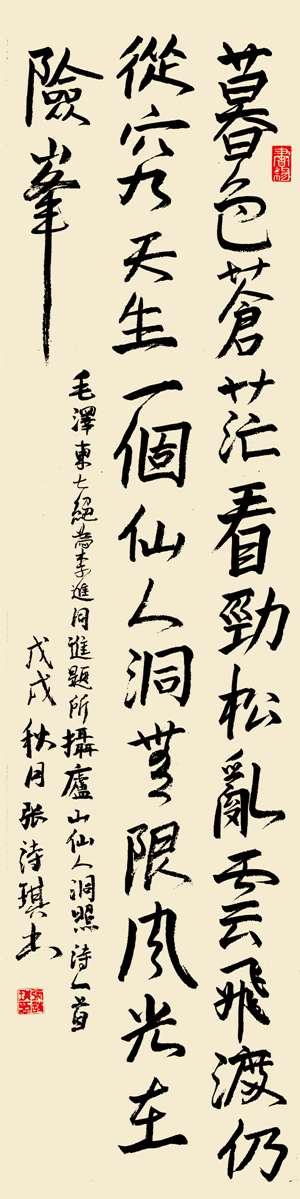 暮色蒼茫看勁松亂雲飛渡仍
從容天生一個仙人洞無限風光在
險峯
毛澤東七絕為李進同進題所攝廬山仙人洞照詩一首
戊戌秋月張詩琪書